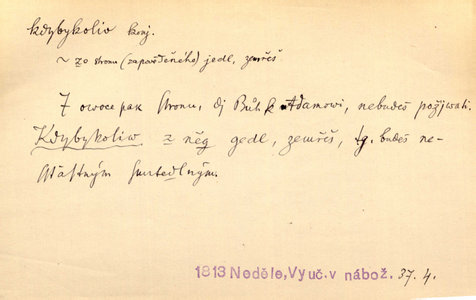 kdybykoliv konj.
~ zo stromu (zapovděného) jedl, zemřeš
Z owoce pak stromu, dj Bůh k Adamowi, nebudeš požjwati.
Kdybykoliw z něg gedl, zemřeš, tg. budeš ne-
sstastným smrtedlným.
1813 Neděle, Vyuč. v nábož. 37. 4.